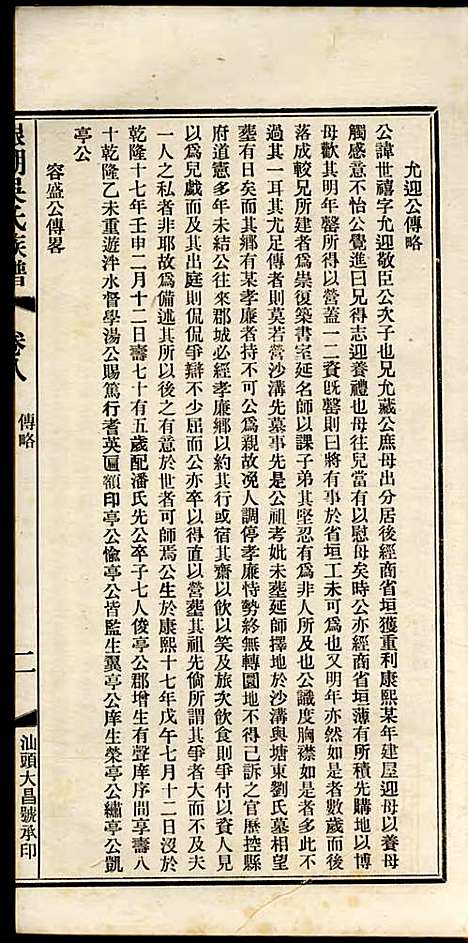 允迎公傳略
公諱世禧字允迎敬臣公次子也兄允藏公庶母出分居後經商省垣獲重利康熙某年建屋迎母以養母
觸感意不怡公覺進曰兄得志迎養禮也母往兒當有以慰母矣時公亦經商省垣薄有所積先購地以博
母歡其明年罄所得以營蓋一二資既罄則曰將有事於省垣工未可爲也又明年亦然如是者數歲而後
落成較兄所建者爲崇復築書室延名師以課子弟其堅忍有爲非人所及也公識度胸襟如是者多此不
過其一耳其尤足傳者則莫若營沙溝先墓事先是公祖考妣未塟延師擇地於沙溝與塘東劉氏墓相望
塟有日矣而其鄉有某孝廉者持不可公爲親故浼人調停孝廉恃勢終無轉圜地不得己訴之官歷控縣
府道憲多年未結公往來郡城必經孝廉鄉以約其行或宿其齋以飲以笑及旅次飲食則爭付以資人見
以爲兒戲而及其出庭則侃侃爭辯不少屈而公亦卒以得直以營塟其祖先倘所謂其爭者大而不及夫
一人之私者非耶故爲備述其所以後之有意於世者可師焉公生於康熙十七年戊午七月十二日沒於
乾隆十七年壬申二月十二日壽七十有五歲配潘氏先公卒子七人俊亭公郡增生有聲庠序間享壽八
十乾隆乙未重遊泮水督學湯公賜篤行耆英匾額印亭公愉亭公皆監生翼亭公庠生榮亭公繡亭公凱
亭公
容盛公傳畧
湖吳氏族譜
卷八
傳略
二
汕頭大昌號承印